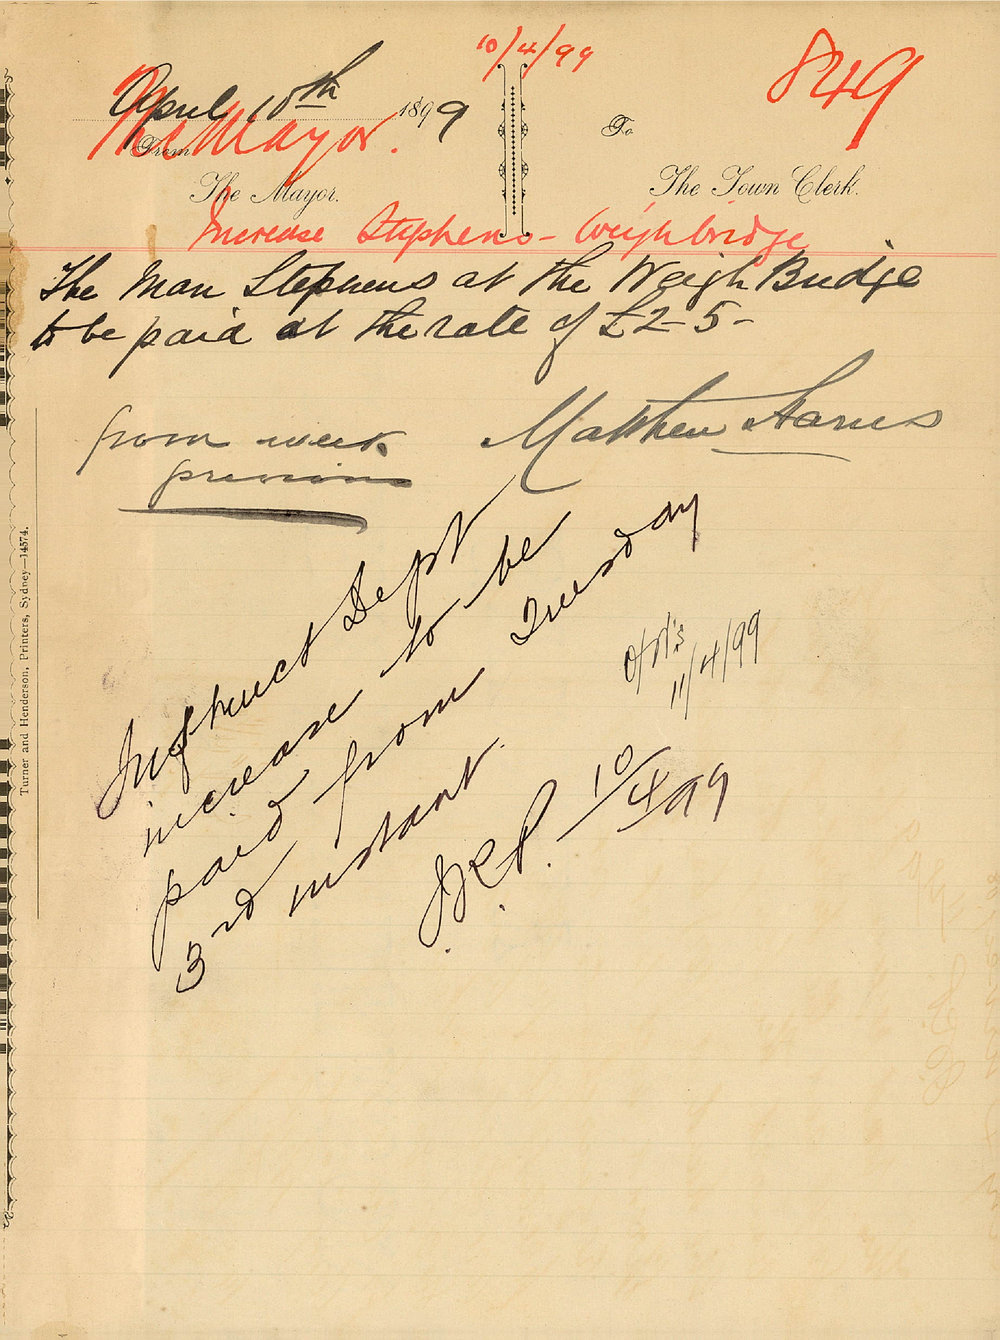 10/4/99
849
April 10th 1899
The Mayor.
From
To
The Mayor.
The Town Clerk.
Increase Stephens - Weighbridge
The Man Stephens at the Weigh Bridge
to be paid at the rate of £2-5-
from week
previous
Matthew Harris
Instruct Dept
increase to be
paid from Tuesday
3rd instant.
10/4/99
11/4/99
Turner and Henderson, Printers, Sydney—14574.